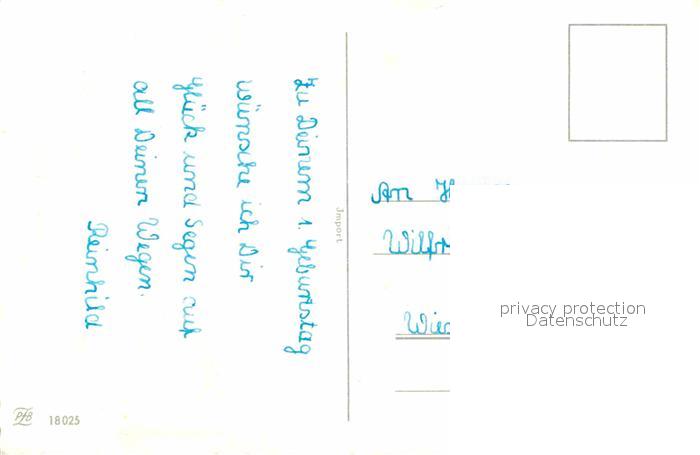 Zu Deinem 1. Geburtstag
wünsche ich Dir
Glück und Segen auf
all Deinen Wegen.
Reinhild
Import
An H
Wilfri
Wie
privacy protection
Datenschutz
PFB 18025